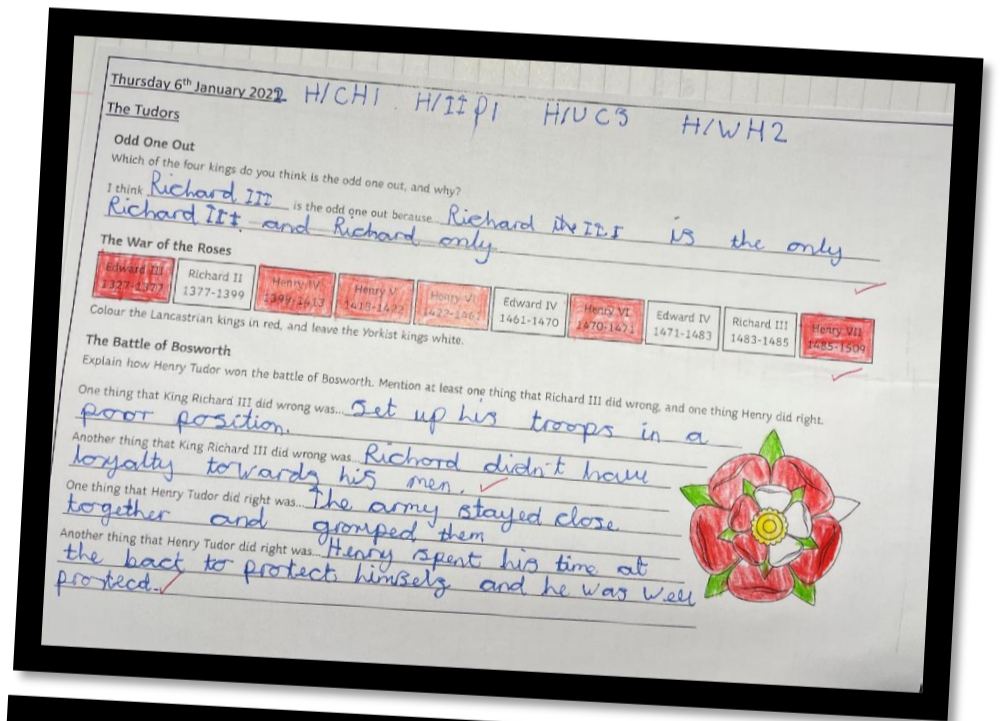 Thursday 6th January 2022 H/CH1 H/IIP1 H/UC3 H/WH2
The Tudors
Odd One Out
Which of the four kings do you think is the odd one out, and why?
I think Richard III is the odd one out because Richard the III is the only
Richard III and Richard only
The War of the Roses
Edward III Richard II Henry IV Henry V Henry VI Edward IV Henry VI Edward IV Richard III Henry VII
1327-1377 1377-1399 1399-1413 1413-1422 1422-1461 1461-1470 1470-1471 1471-1483 1483-1485 1485-1509
Colour the Lancastrian kings in red, and leave the Yorkist kings white.
The Battle of Bosworth
Explain how Henry Tudor won the battle of Bosworth. Mention at least one thing that Richard III did wrong, and one thing Henry did right.
One thing that King Richard III did wrong was... Set up his troops in a
poor position.
Another thing that King Richard III did wrong was... Richard didn't have
loyalty towards his men.
One thing that Henry Tudor did right was... The army stayed close
together and grouped them
Another thing that Henry Tudor did right was... Henry spent his time at
the back to protect himself and he was well
protecd.